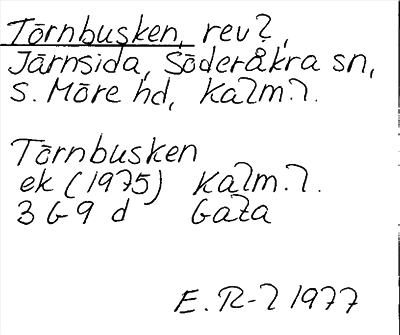 Törnbusken, revl,
Järnsida, Söderåkra sn,
S. Möre hd, Kalm.l.
Törnbusken
ek (1975) Kalm.l.
3 G 9 d Gata
E. R-l 1977